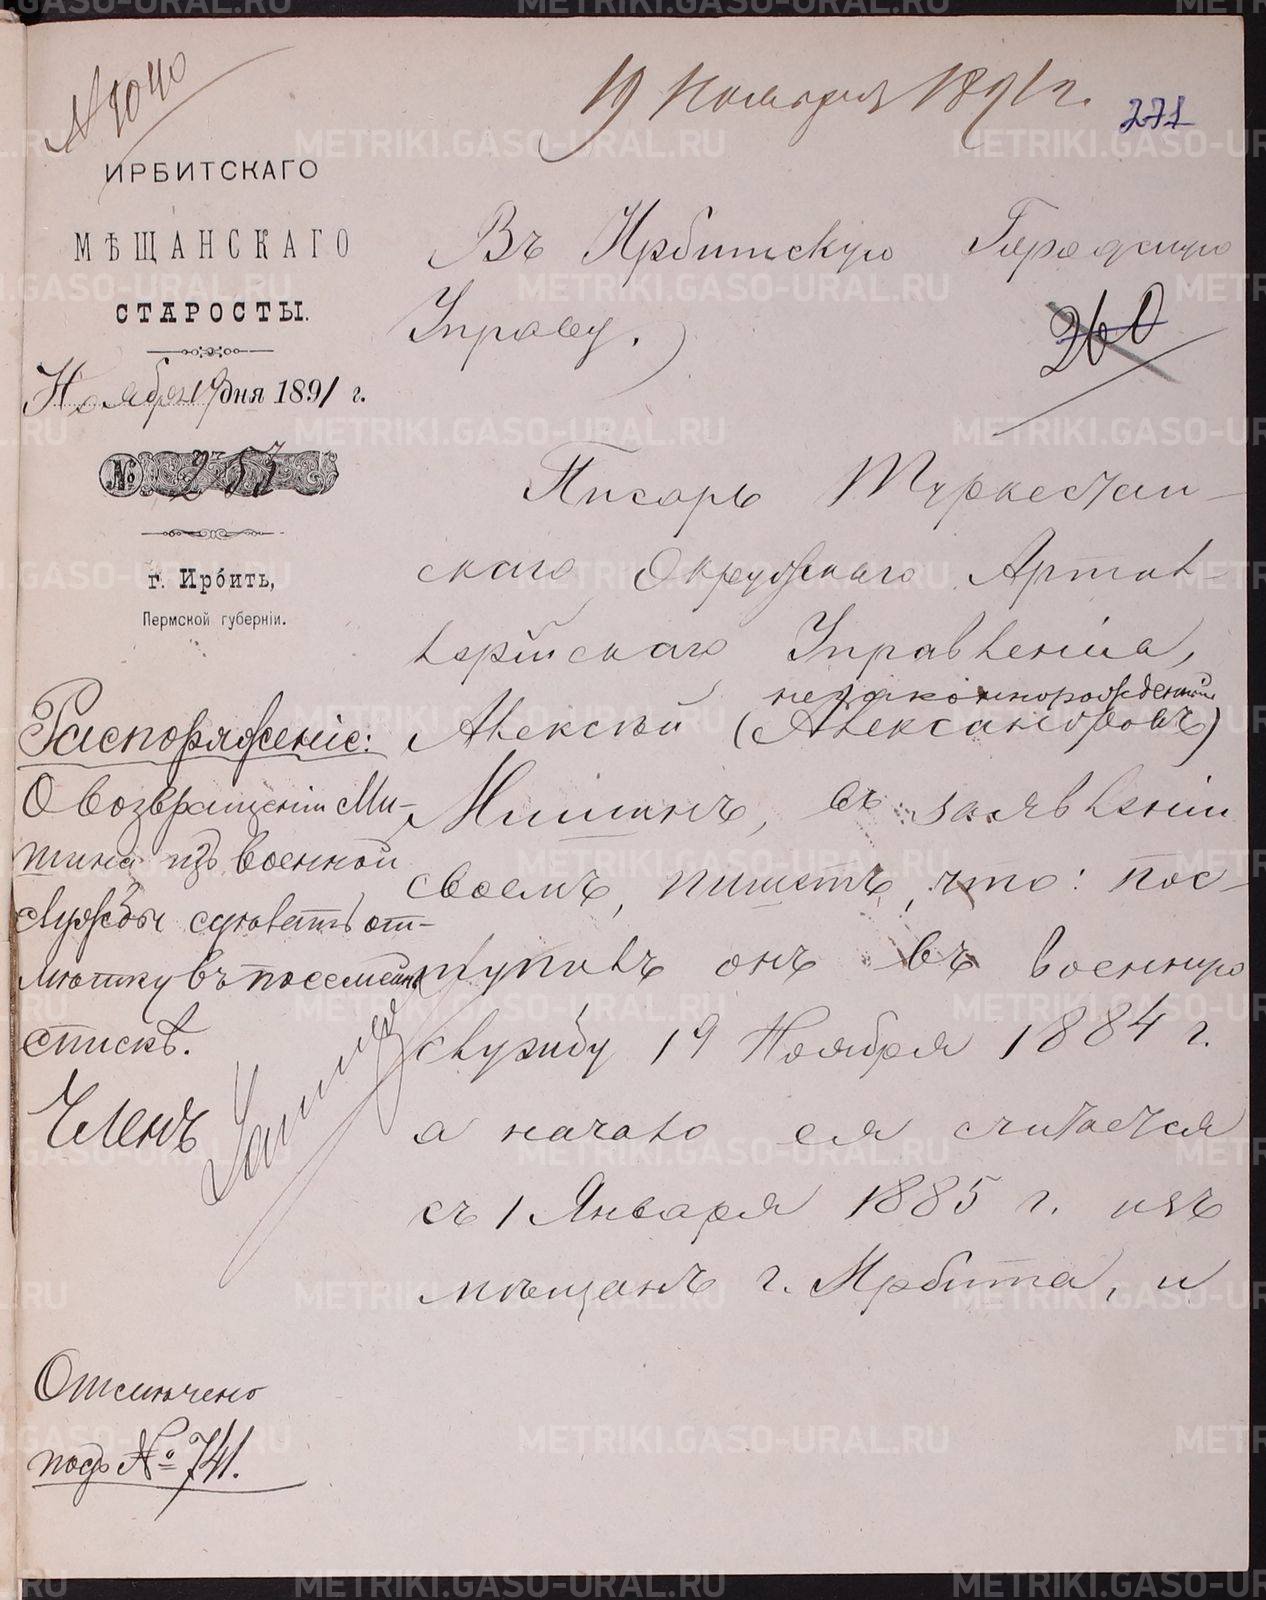 № 1040
19 Ноября 1891 г.
271
ИРБИТСКАГО
МѢЩАНСКАГО
СТАРОСТЫ.
Ноября 19 дня 1891 г.
№ 257
г. Ирбить,
Пермской губерніи.
Въ Ирбитскую Городскую
Управу.
260
Писарь Туркестан-
скаго Окружнаго Артил-
лерійскаго Управленія,
незаконнорожденный
Алексѣй (Александровъ)
Мишинъ, въ заявленіи
своемъ, пишетъ, что: пос-
тупилъ онъ въ военную
службу 19 Ноября 1884 г.
а начало ея считается
съ 1 Января 1885 г. изъ
мѣщанъ г. Ирбита, и
Распоряженіе:
О возвращеніи Ми-
шина изъ военной
службы сдѣлать от-
мѣтку въ посемейн
спискѣ.
Членъ
Отмѣчено
подъ № 741.
METRIKI.GASO-URAL.RU